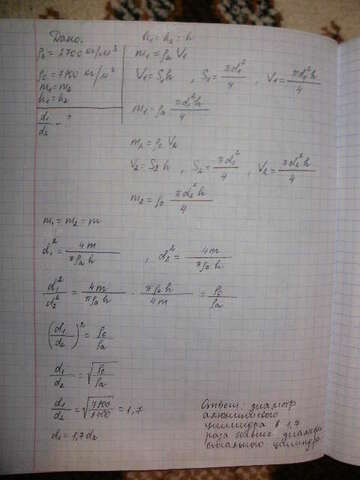 Дано:
ρа = 2700 кг/м³
ρс = 7800 кг/м³
m₁ = m₂
h₁ = h₂
d₁/d₂ - ?
h₁ = h₂ = h
m₁ = ρа V₁
V₁ = S₁h , S₁ = πd₁²/4 , V₁ = πd₁²h/4
m₁ = ρа πd₁²h/4
m₂ = ρс V₂
V₂ = S₂ h , S₂ = πd₂²/4 , V₂ = πd₂²h/4
m₂ = ρс πd₂²h/4
m₁ = m₂ = m
d₁² = 4m/πρа h , d₂² = 4m/πρс h
d₁²/d₂² = 4m/πρа h · πρс h/4m = ρс/ρа
(d₁/d₂)² = ρс/ρа
d₁/d₂ = √ρс/ρа
d₁/d₂ = √7800/2700 = 1,7
d₁ = 1,7 d₂
Ответ: диаметр
алюминиевого
цилиндра в 1,7
раза больше диаметра
стального цилиндра